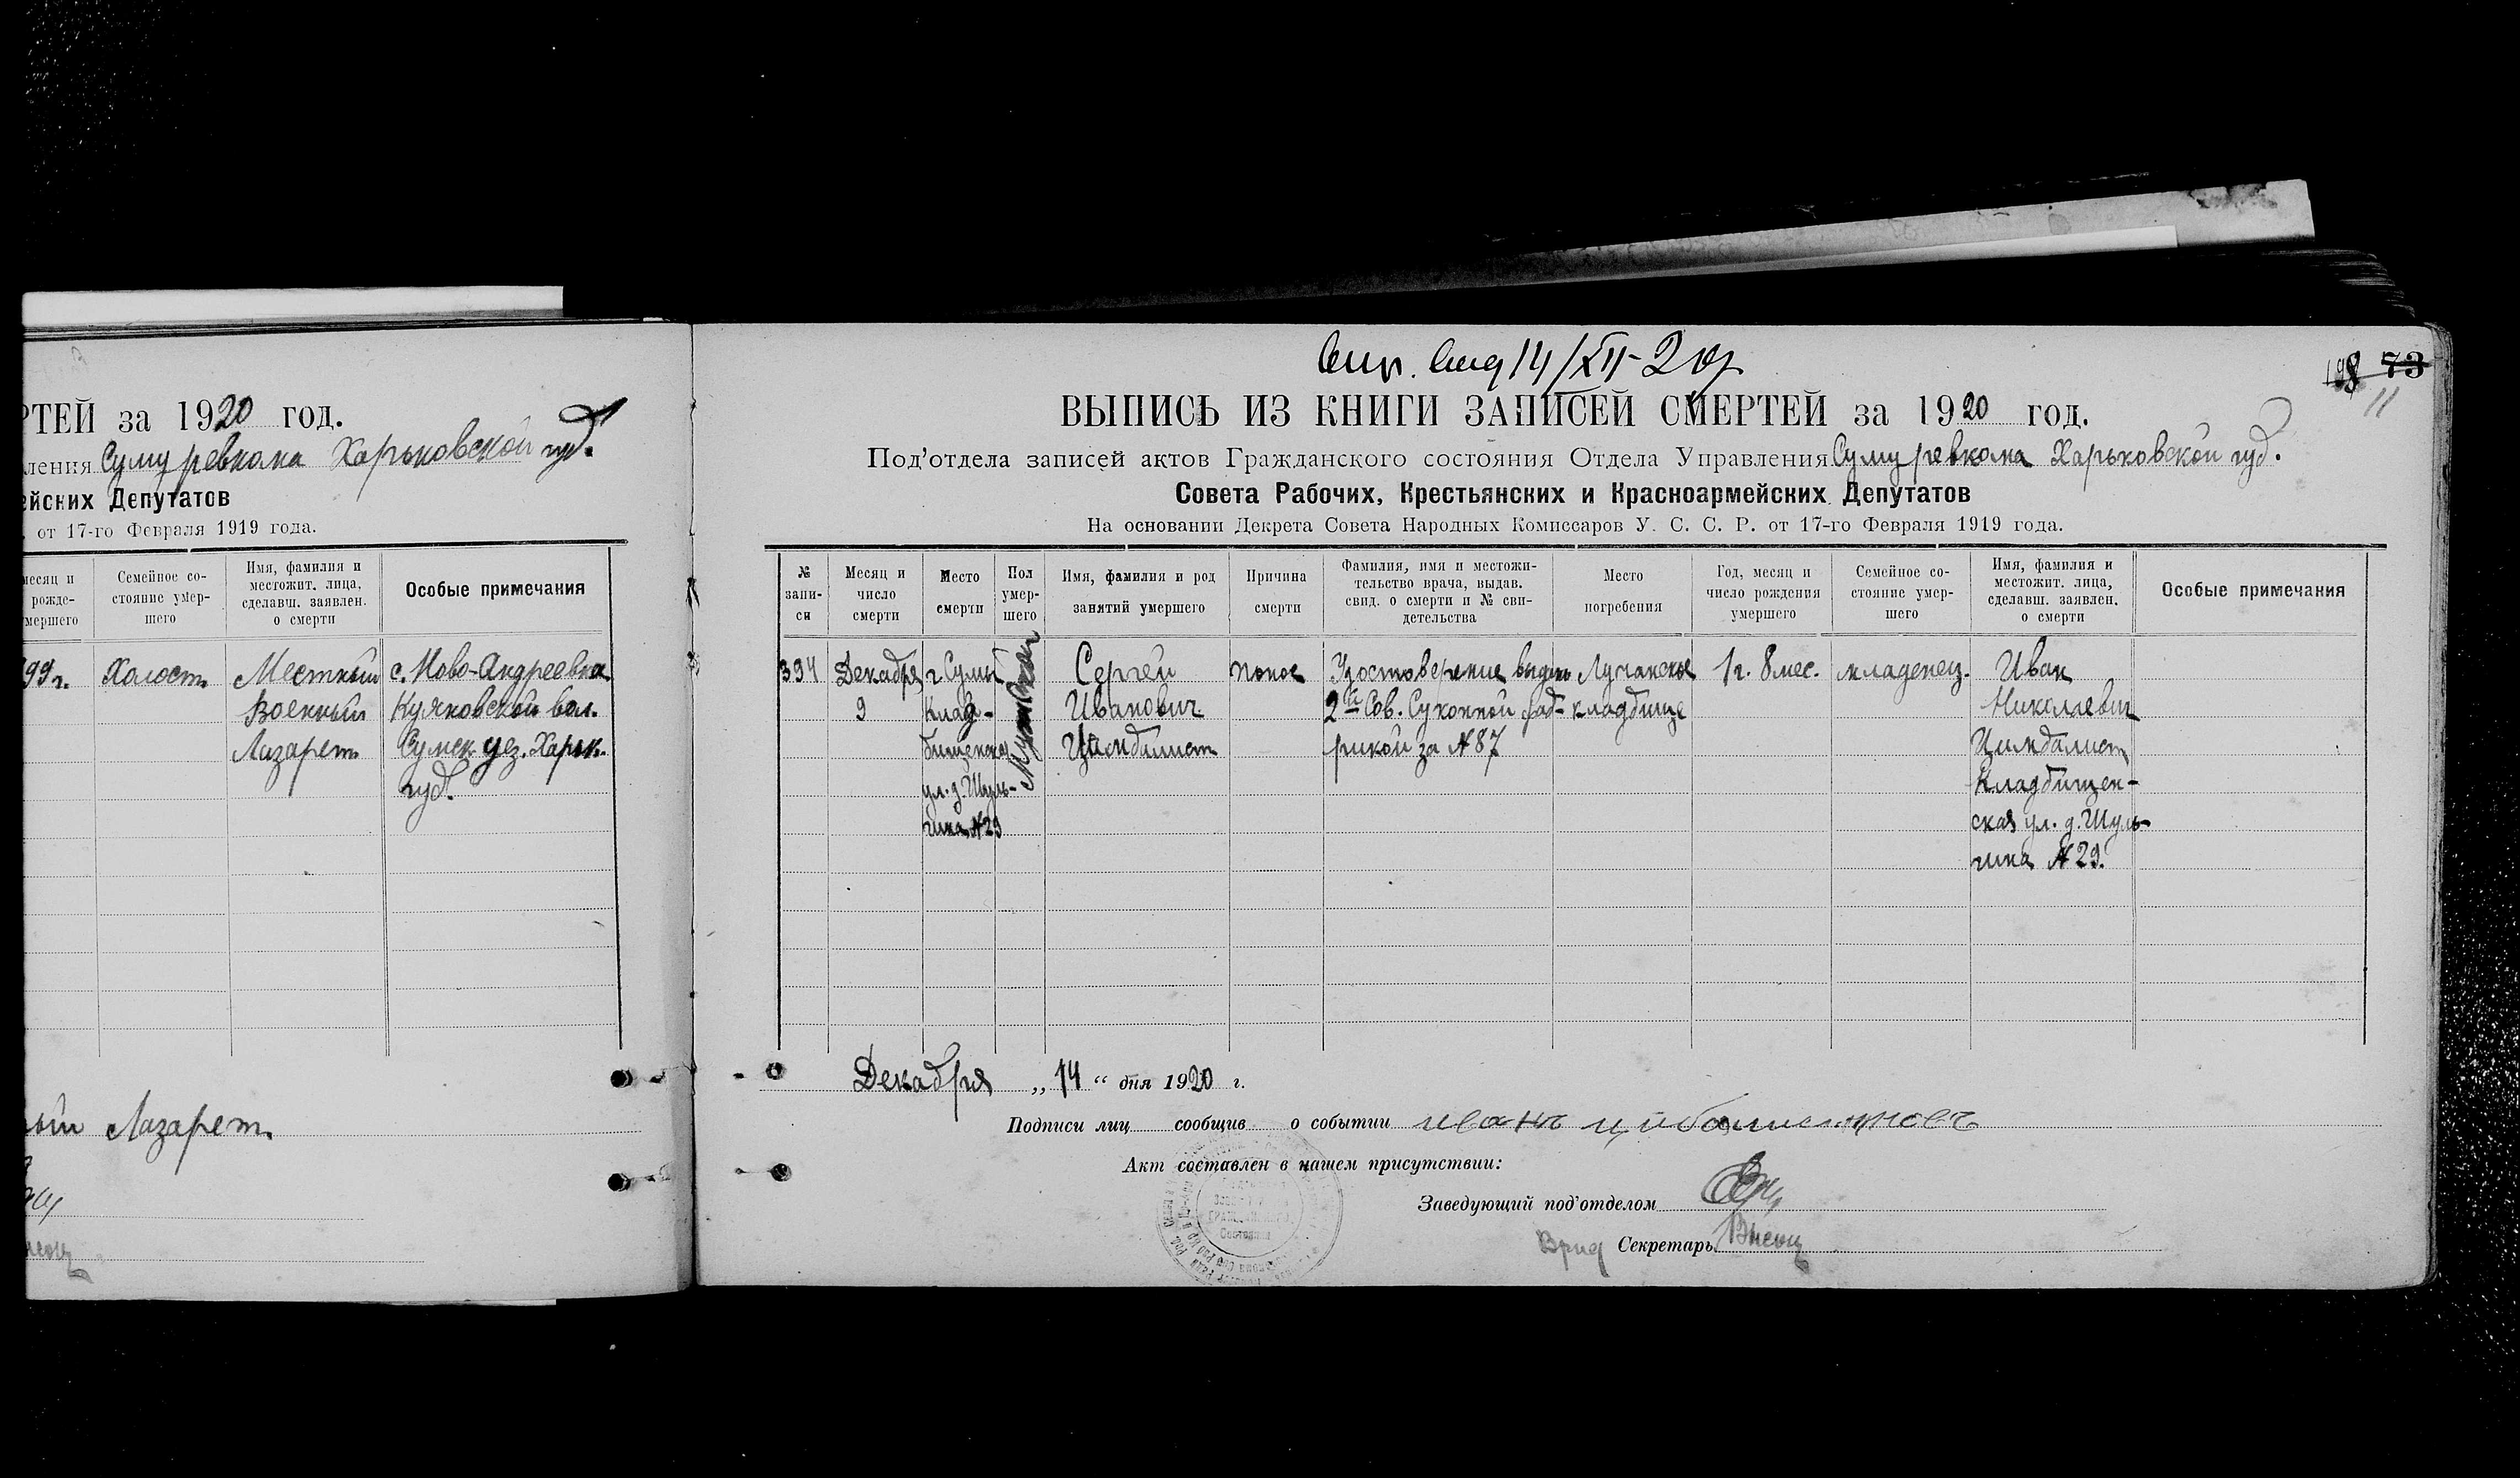 РТЕЙ за 1920 год.
ления Сумуревкома Харьковской губ.
ейских Депутатов
от 17-го Февраля 1919 года.
месяц и
рожде-
мершего
Семейное со-
стояние умер-
шего
Имя, фамилия и
местожит. лица,
сделавш. заявлен.
о смерти
Особые примечания
99 г.
Холост.
Местный
Военный
Лазарет.
с. Ново-Андреевка
Куяновской вол.
Сумск. уез. Харьк.
губ.
ый Лазарет.
14/XII-20
198 73
11
ВЫПИСЬ ИЗ КНИГИ ЗАПИСЕЙ СМЕРТЕЙ за 1920 год.
Под'отдела записей актов Гражданского состояния Отдела Управления Сумуревкома Харьковской губ.
Совета Рабочих, Крестьянских и Красноармейских Депутатов
На основании Декрета Совета Народных Комиссаров У. С. С. Р. от 17-го Февраля 1919 года.
№
запи-
си
Месяц и
число
смерти
Место
смерти
Пол
умер-
шего
Имя, фамилия и род
занятий умершего
Причина
смерти
Фамилия, имя и местожи-
тельство врача, выдав.
свид. о смерти и № сви-
детельства
Место
погребения
Год, месяц и
число рождения
умершего
Семейное со-
стояние умер-
шего
Имя, фамилия и
местожит. лица,
сделавш. заявлен.
о смерти
Особые примечания
394
Декабря
9
г. Сумы
Клад-
бищенская
ул. д. Шуль-
гина №29
Мужской
Сергей
Иванович
Цимбалист
понос
Удостоверение выдано
2й Сов. Суконной фаб-
рикой за №87
Лучанское
кладбище
1г. 8 мес.
младенец.
Иван
Николаевич
Цимбалист
Кладбищен-
ская ул. д. Шуль-
гина №29.
Декабря „14“ дня 1920 г.
Подписи лиц сообщив о событии иванъ
Акт составлен в нашем присутствии:
Заведующий под'отделом
Врид Секретарь